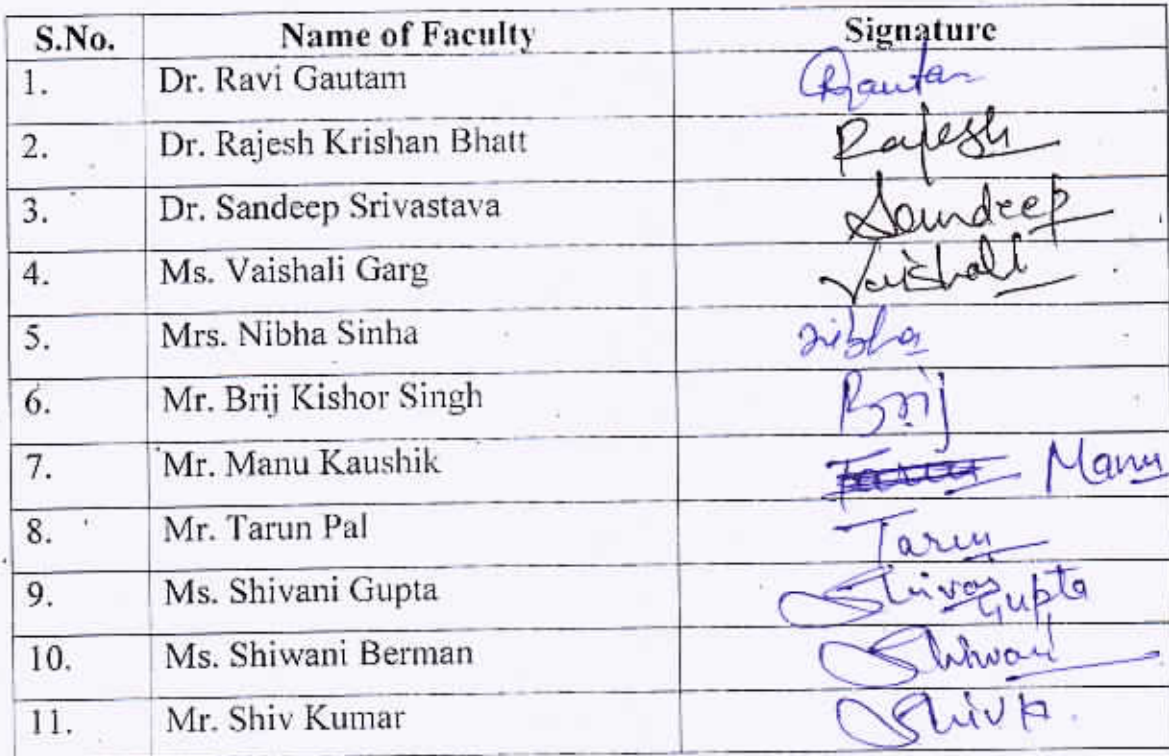 S.No. Name of Faculty Signature
1. Dr. Ravi Gautam Gautam
2. Dr. Rajesh Krishan Bhatt Rajesh
3. Dr. Sandeep Srivastava Sandeep
4. Ms. Vaishali Garg Vaishali
5. Mrs. Nibha Sinha Nibha
6. Mr. Brij Kishor Singh Brij
7. Mr. Manu Kaushik Tarun Manu
8. Mr. Tarun Pal Tarun
9. Ms. Shivani Gupta Shivani Gupta
10. Ms. Shiwani Berman Shiwani
11. Mr. Shiv Kumar Shiv K.